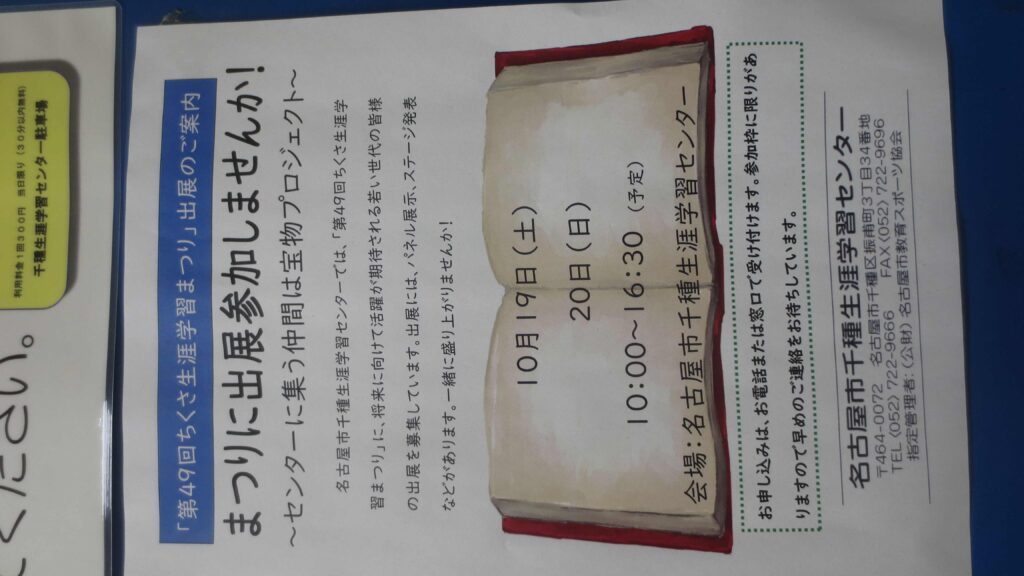 てください。
利用料金1回300円 当日限り(30分以内無料)
千種生涯学習センター駐車場
「第49回ちくさ生涯学習まつり」出展のご案内
まつりに出展参加しませんか!
～センターに集う仲間は宝物プロジェクト～
名古屋市千種生涯学習センターでは、「第49回ちくさ生涯学
習まつり」に、将来に向けて活躍が期待される若い世代の皆様
の出展を募集しています。出展には、パネル展示、ステージ発表
などがあります。一緒に盛り上がりませんか!
10月19日(土)
20日(日)
10:00～16:30 (予定)
会場:名古屋市千種生涯学習センター
お申し込みは、お電話または窓口で受け付けます。参加枠に限りがあ
りますので早めのご連絡をお待ちしています。
名古屋市千種生涯学習センター
〒464-0072 名古屋市千種区振甫町3丁目34番地
TEL(052)722-9666 FAX(052)722-9696
指定管理者:(公財)名古屋市教育スポーツ協会